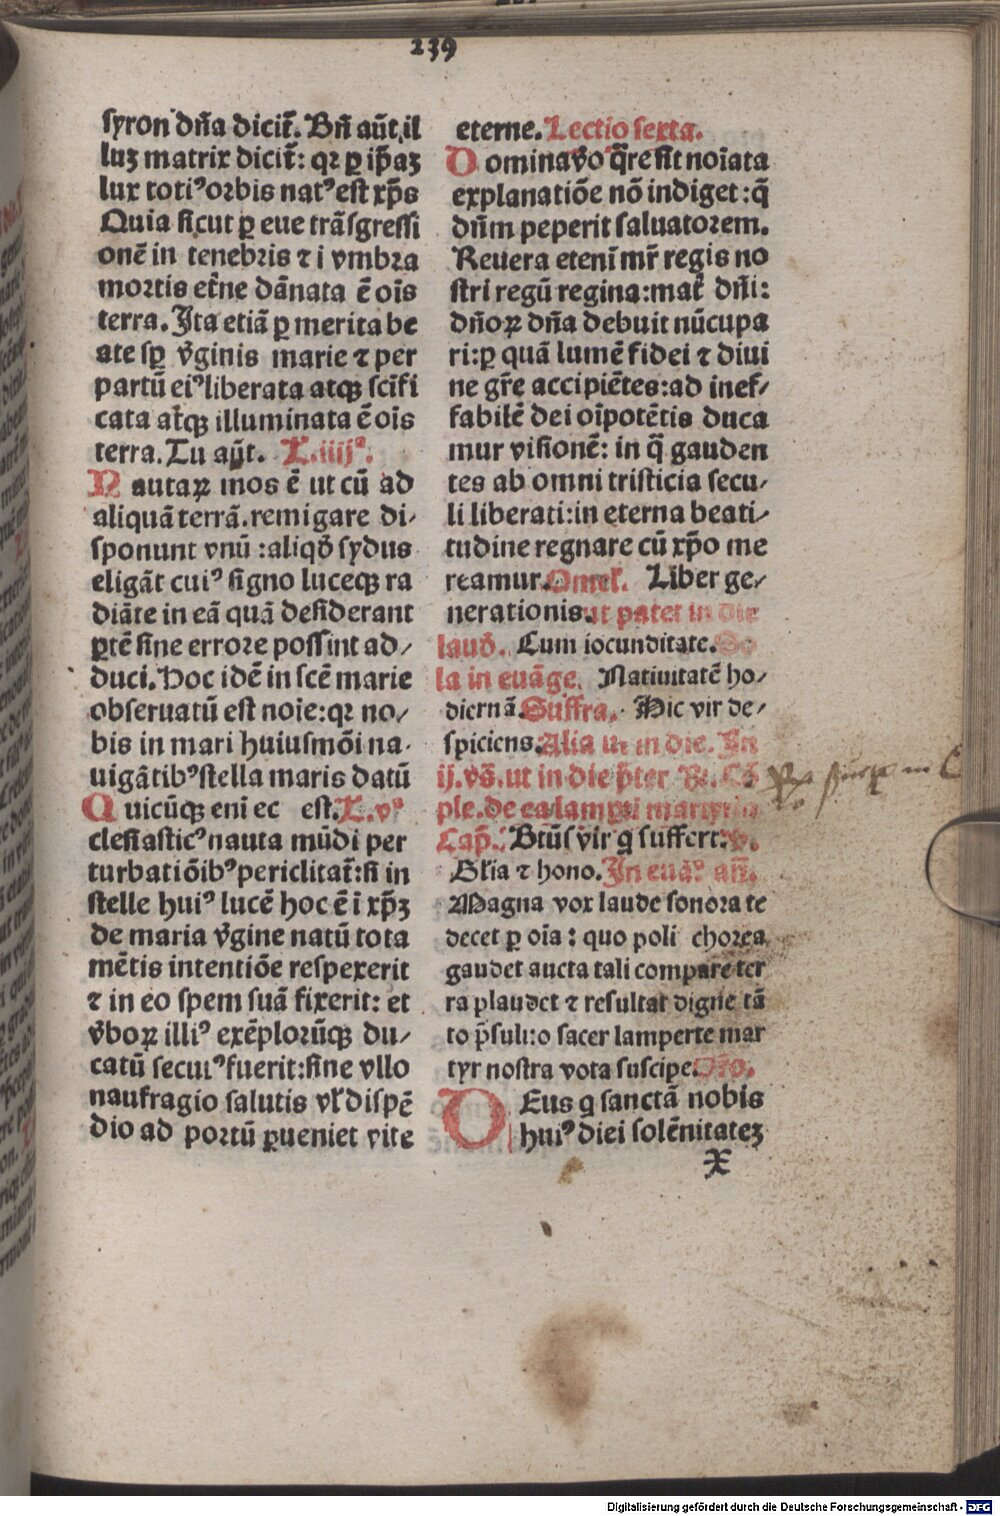 239
syron dn̄a dicit̄. Bn̄ aūt il
luꝫ matrix dicit̄: qꝛ ꝑ ip̄aꝫ
lux totiꝰ orbis natꝰ est xp̄s
Quia sicut ꝑ eue trāsgressi
onē in tenebris ⁊ i vmbra
mortis et̄ne dānata ē oīs
terra. Ita etiā ꝑ merita be
ate sꝑ v̄ginis marie ⁊ per
partū eiꝰ liberata atqꝫ scīfi
cata at̄qꝫ illuminata ē oīs
terra. Tu aūt. L. iiijᵃ.
Nautaꝝ mos ē ut cū ad
aliquā terrā. remigare di⸗
sponunt vnū : aliqd̄ sydus
eligāt cuiꝰ signo luceqꝫ ra
diāte in eā quā desiderant
ꝑtē sine errore possint ad⸗
duci. Hoc idē in scē marie
obseruatū est noīe: qꝛ no⸗
bis in mari huiusmōi na⸗
uigātibꝰ stella maris datū
Quicūqꝫ enī ec est. L. vᵃ
clesiasticꝰ nauta mūdi per
turbatiōibꝰ periclitat̄: si in
stelle huiꝰ lucē hoc ē i xp̄ꝫ
de maria v̄gine natū tota
mētis intentiōe respexerit
⁊ in eo spem suā fixerit: et
v̄boꝝ illiꝰ exēplorūqꝫ du⸗
catū secuiꝰ fuerit: sine vllo
naufragio salutis vl̄ dispē
dio ad portū ꝑueniet vite
eterne. Lectio sexta.
Domina v̄o q̄re sit noīata
explanatiōe nō indiget : q̄
dn̄m peperit saluatorem.
Reuera etenī mr̄ regis no
stri regū regina: mat̄ dn̄i:
dn̄oꝝ dn̄a debuit nūcupa
ri: ꝑ quā lumē fidei ⁊ diui
ne gr̄e accipiētes: ad inef⸗
fabilē dei oīpotētis duca
mur visionē: in q̄ gauden
tes ab omni tristicia secu⸗
li liberati: in eterna beati⸗
tudine regnare cū xp̄o me
reamur. Omel̄. Liber ge⸗
nerationis. ut patet in die
laud̄. Cum iocunditate. So
la in euāge. Natiuitatē ho⸗
diernā. Suffra. Hic vir de⸗
spiciens. Alia ut in die. In
ij. vs̄. ut in die p̄ter R. Cō
ple. de ea lamperti martyris
Cap̄. Btūs vir q suffert. v.
Gl̄ia ⁊ hono. In euā. an̄.
Magna vox laude sonora te
decet ꝑ oīa : quo poli chorea
gaudet aucta tali compare ter
ra plaudet ⁊ resultat digne tā
to p̄suli: o sacer lamperte mar
tyr nostra vota suscipe. Or̄o.
DEus q sanctā nobis
huiꝰ diei solēnitateꝫ
x
Digitalisierung gefördert durch die Deutsche Forschungsgemeinschaft - DFG